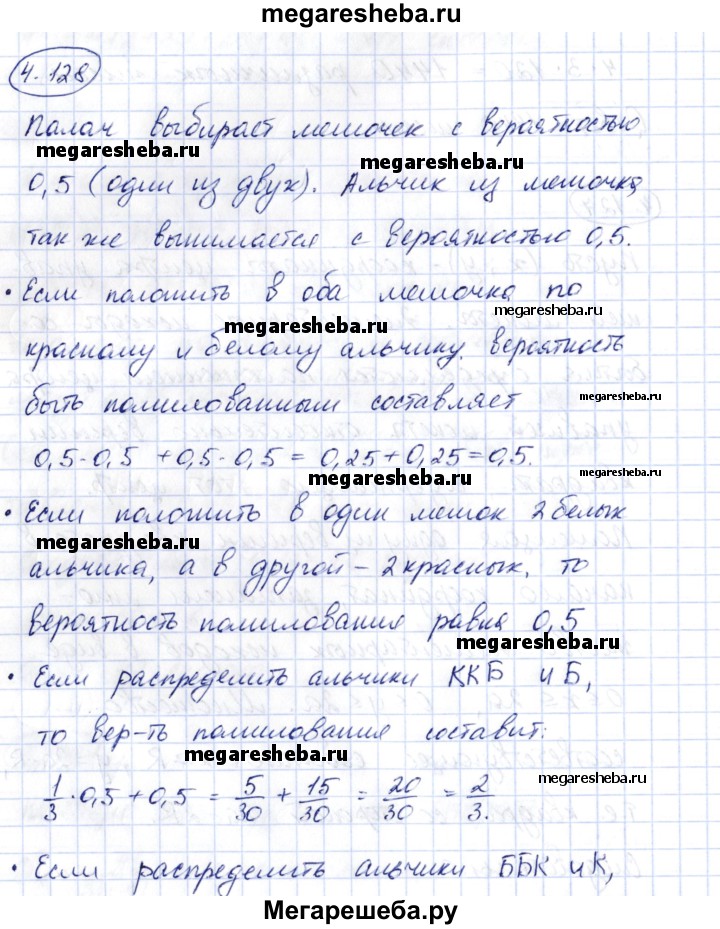 megaresheba.ru
4.128
Палач выбирает мешочек с вероятностью
megaresheba.ru
megaresheba.ru
0,5 (один из двух). Альчик из мешочка
так же вынимается с вероятностью 0,5.
• Если положить в оба мешочка по
megaresheba.ru
megaresheba.ru
красному и белому альчику. вероятность
быть помилованным составляет
megaresheba.ru
0,5·0,5 + 0,5·0,5 = 0,25 + 0,25 = 0,5.
megaresheba.ru
• Если положить в один мешок 2 белых
megaresheba.ru
альчика, а в другой – 2 красных, то
вероятность помилования равна 0,5
megaresheba.ru
• Если распределить альчики ККБ и Б,
то вер-ть помилования составит:
megaresheba.ru
1/3 · 0,5 + 0,5 = 5/30 + 15/30 = 20/30 = 2/3.
megaresheba.ru
• Если распределить альчики ББК и К,
Мегарешеба.ру